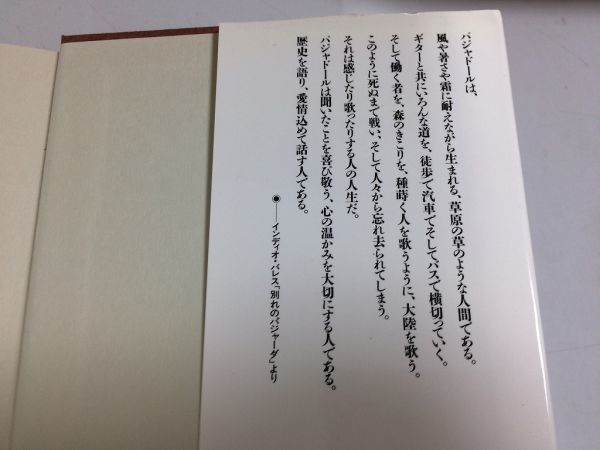 パジャドールは、
風や暑さや霜に耐えながら生まれる、草原の草のような人間である。
ギターと共にいろんな道を、徒歩で汽車でそしてバスで横切っていく。
そして働く者を、森のきこりを、種蒔く人を歌うように、大陸を歌う。
このように死ぬまで戦い、そして人々から忘れ去られてしまう。
それは感じたり歌ったりする人の人生だ。
パジャドールは聞いたことを喜び敬う、心の温かみを大切にする人である。
歴史を語り、愛情込めて話す人である。
◉——インディオ・パレス「別れのパジャーダ」より